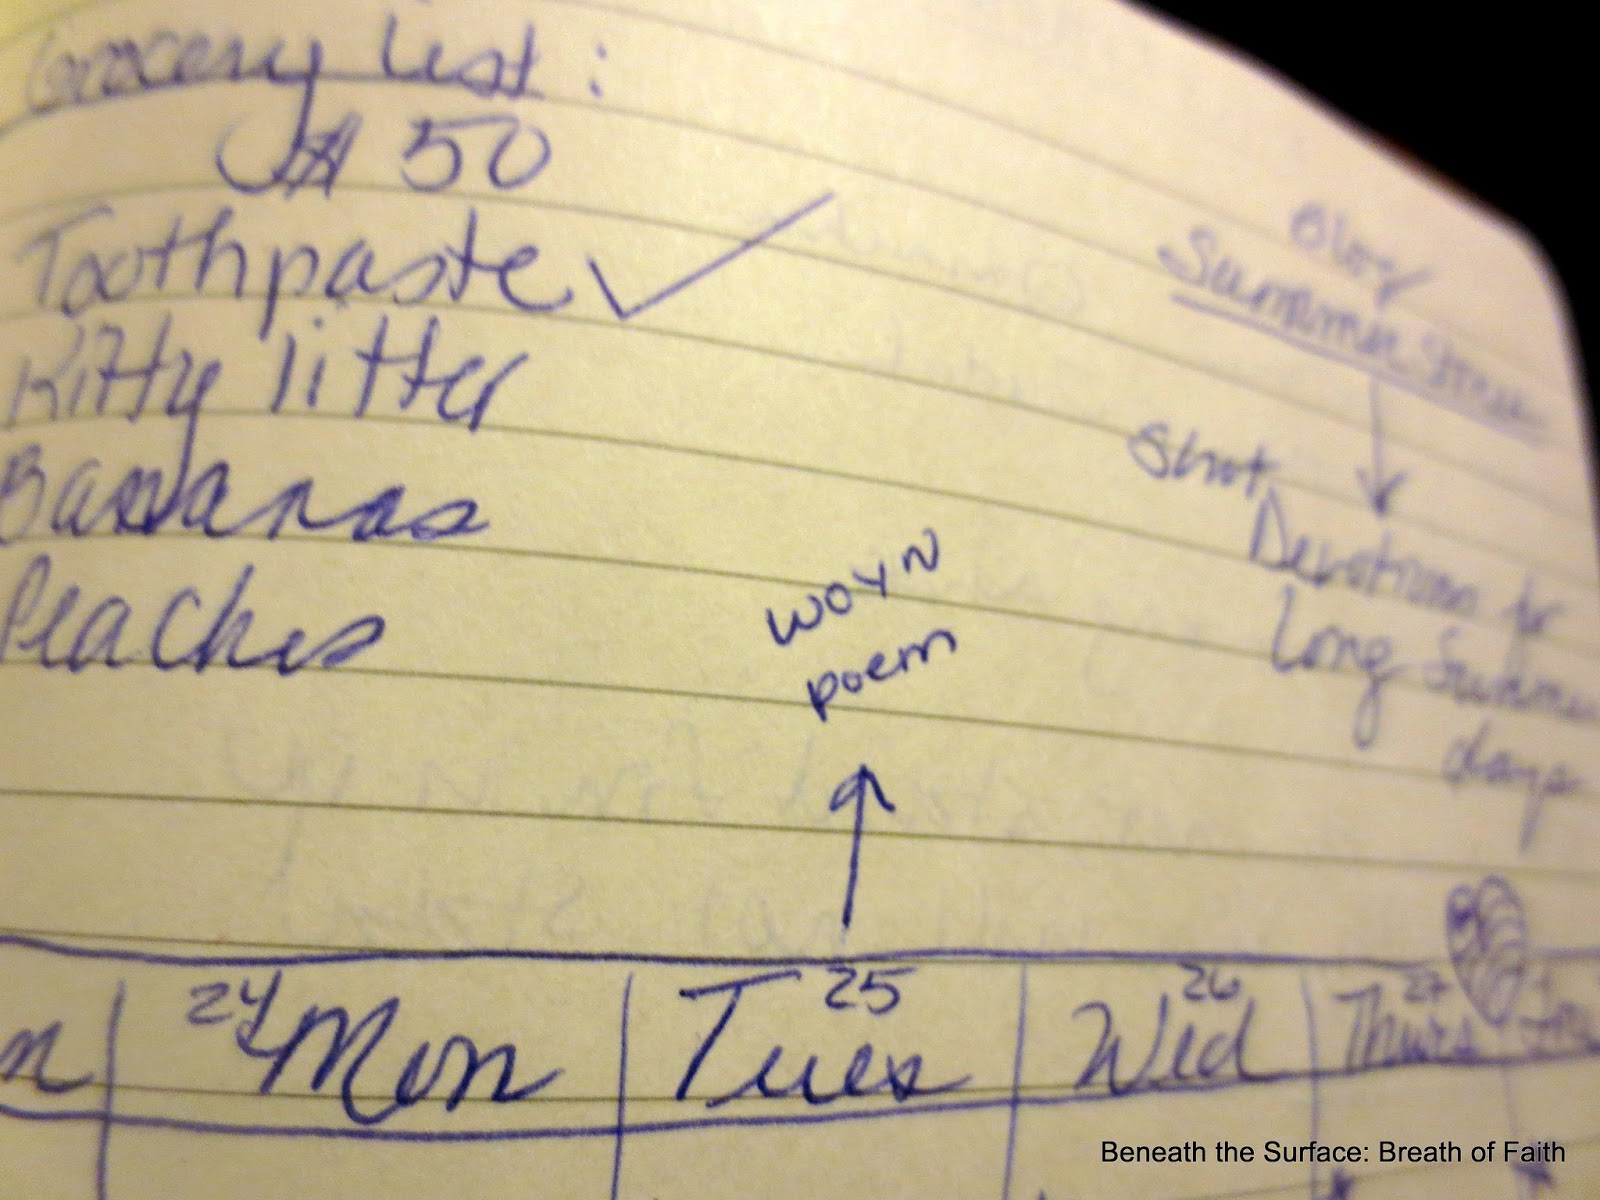 Grocery List:
$50
Toothpaste ✓
Kitty litter
Bananas
Peaches
Blog
Summer
Short
Devotions for
Long Summer
days
WOYN
poem
24 Mon
Tues 25
Wed 26
Thurs 27
Beneath the Surface: Breath of Faith